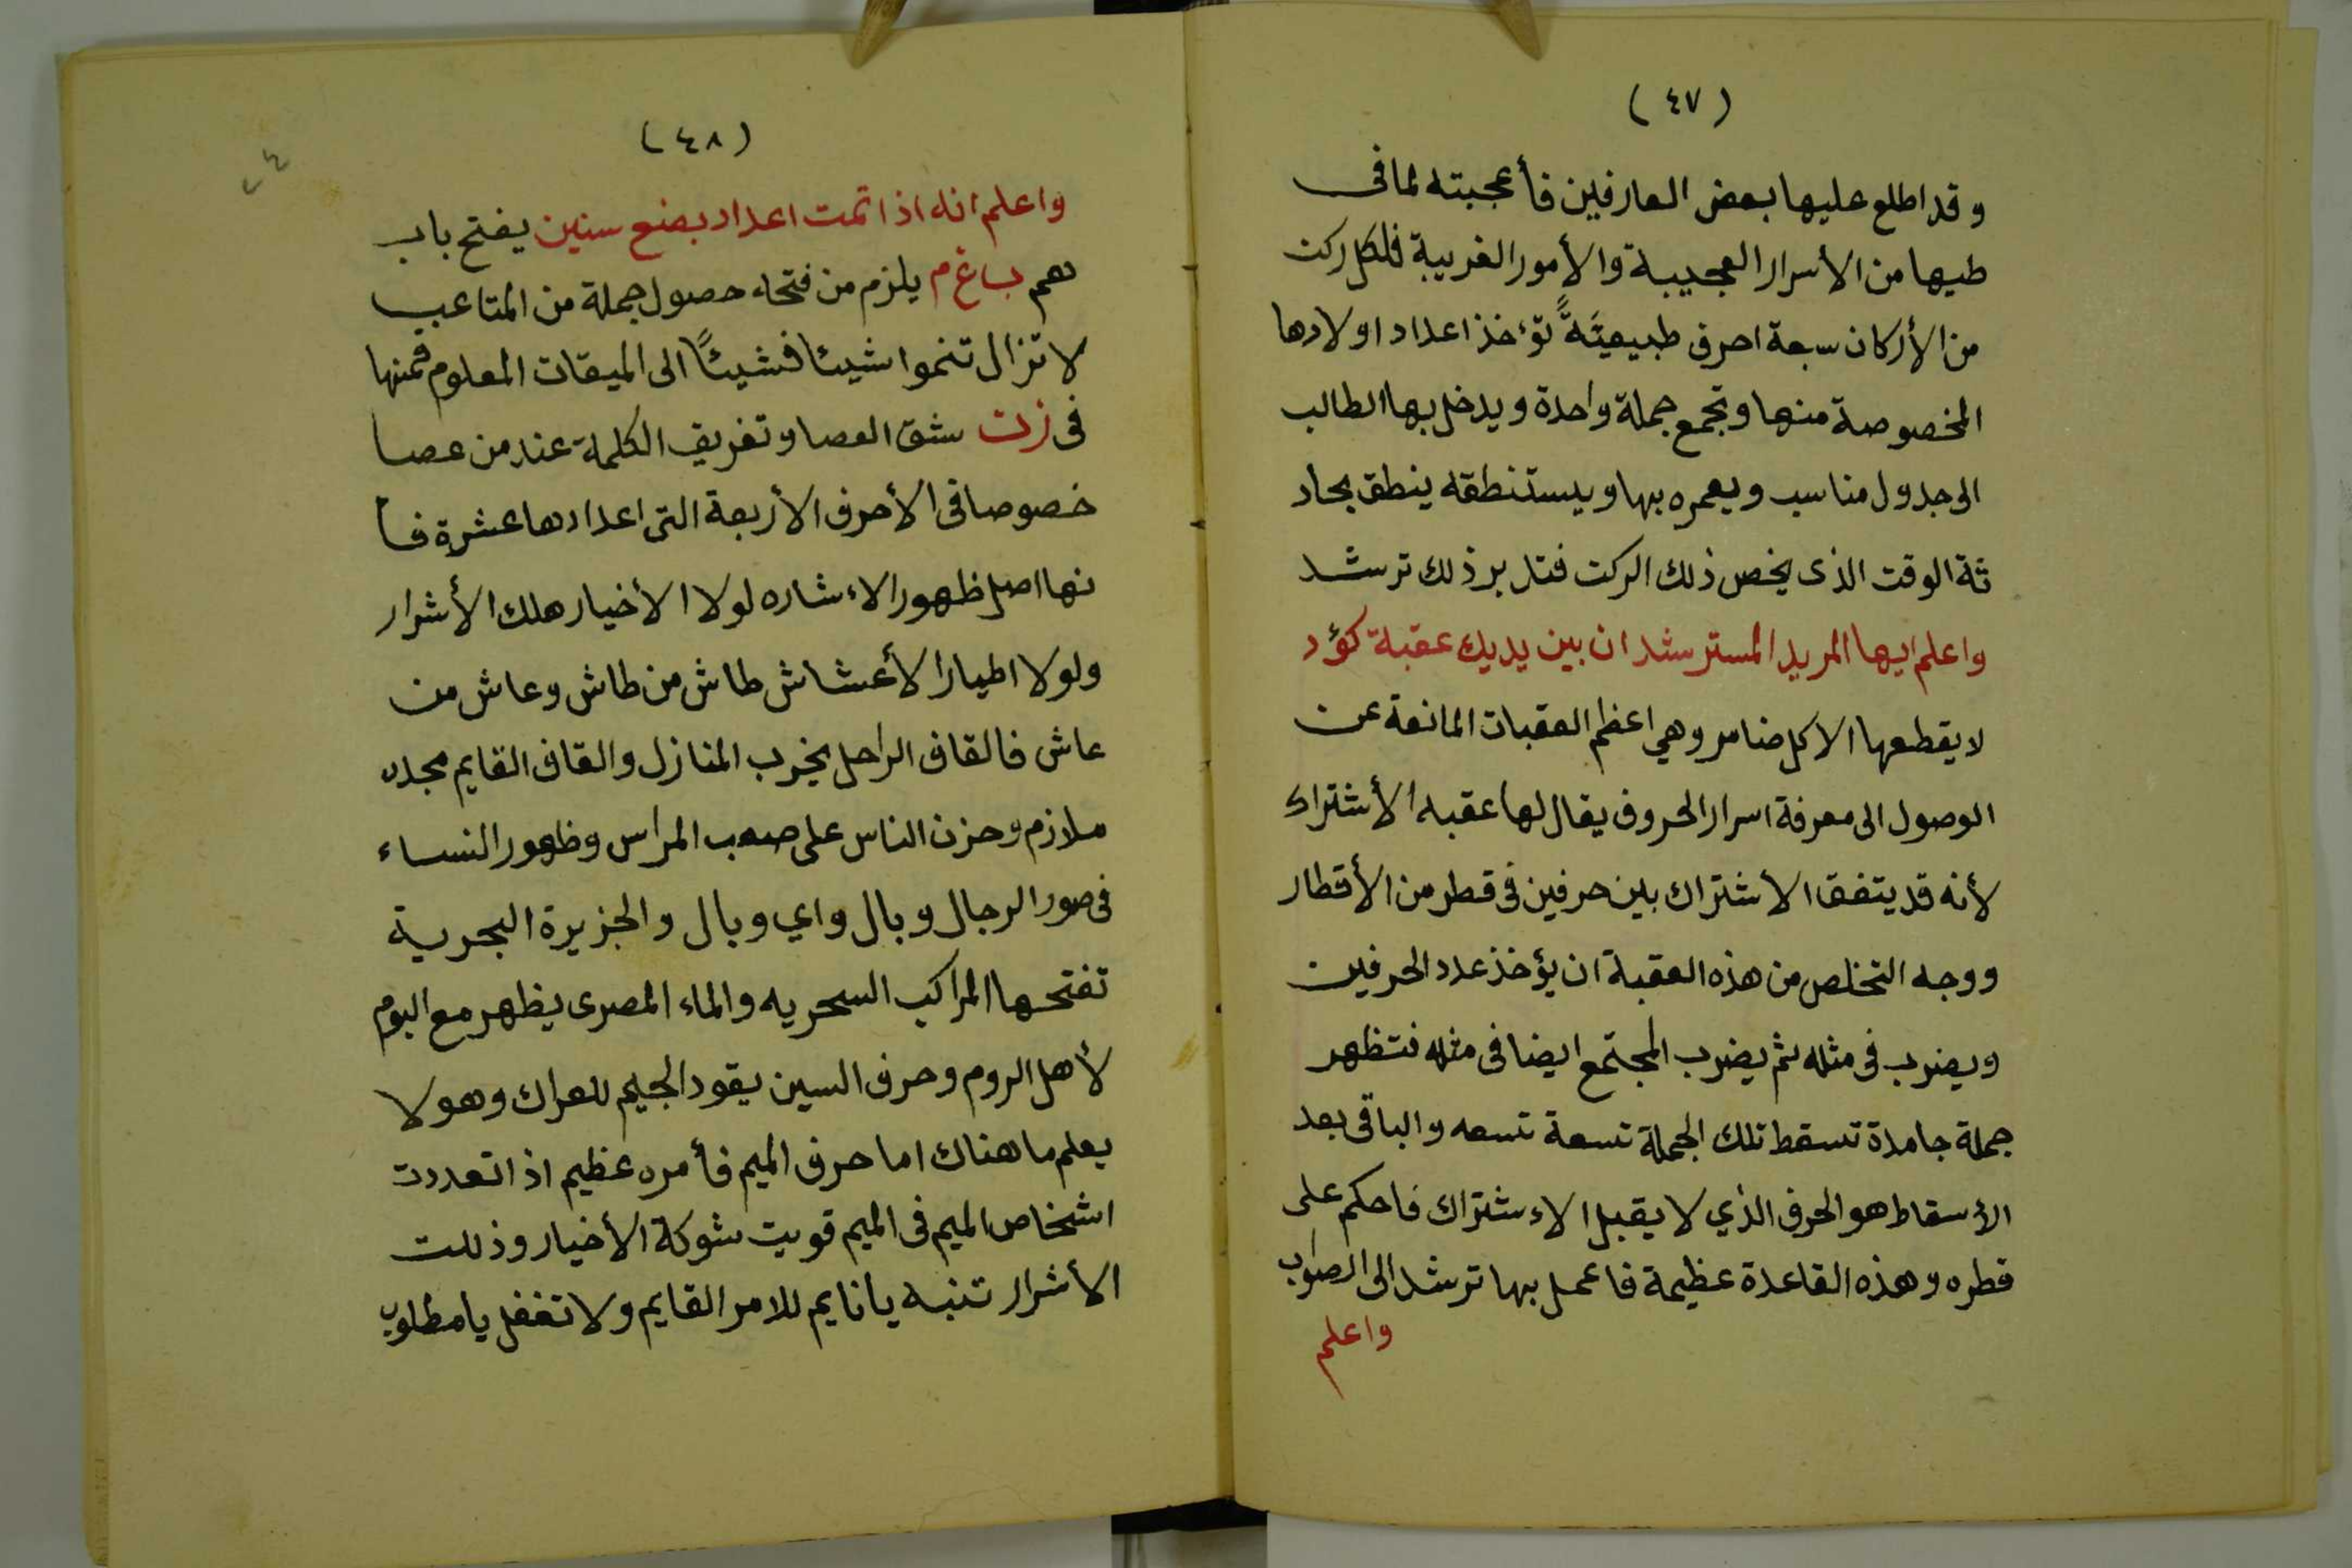 (٤٧)
وقد اطلع عليها بعض العارفين فأعجبته لما فى
طيها من الأسرار العجيبة والأمور الغريبة فلكل ركن
من الأركان سبعة احرف طبيعيَّةً تؤخذ اعداد اولادها
المخصوصة منها وتجمع جملة واحدة ويدخل بها الطالب
الى جدول مناسب ويعمره بها ويستنطقه ينطق بحاد
ثة الوقت الذى يخص ذلك الركن فتدبر ذلك ترشد
واعلم ايها المريد المسترشد ان بين يديك عقبة كؤد
لا يقطعها الا كل ضامر وهي اعظم العقبات المانعة عن
الوصول الى معرفة اسرار الحروف يقال لها عقبه الأشتراك
لأنه قد يتفق الاشتراك بين حرفين فى قطر من الأقطار
ووجه التخلص من هذه العقبة ان يؤخذ عدد الحرفين
ويضرب فى مثله ثم يضرب المجتمع ايضا فى مثله فتظهر
جملة جامدة تسقط تلك الجملة تسعة تسعه والباقى بعد
الأسقاط هو الحرف الذي لا يقبل الاءشتراك فاحكم على
قطره وهذه القاعدة عظيمة فاعمل بها ترشد الى الصواب
واعلم
(٤٨)
واعلم انه اذا تمت اعداد بضع سنين يفتح باب
هم ب غ م يلزم من فتحه حصول جملة من المتاعب
لا تزال تنموا شيئا فشيئًا الى الميقات المعلوم فمنها
فى زن شق العصا وتفريق الكلمة عند من عصا
خصوصا فى الأحرف الأربعة التى اعدادها عشرة فا
نها اصل ظهور الاءشاره لولا الأخيار هلك الأشرار
ولولا اطيار الأعشاش طاش من طاش وعاش من
عاش فالقاف الراحل يخرب المنازل والقاف القايم مجده
ملازم وحزن الناس على صعب المراس وظهور النساء
فى صور الرجال وبال واي وبال والجزيرة البحرية
تفتحها المراكب السحريه والماء المصرى يظهر مع البوم
لأهل الروم وحرف السين يقود الجيم للعراك وهو لا
يعلم ما هناك اما حرف الميم فأمره عظيم اذا تعددت
اشخاص الميم فى الميم قويت شوكة الأخيار وذلت
الأشرار تنبه يا نايم للامر القايم ولا تغفل يا مطلوب